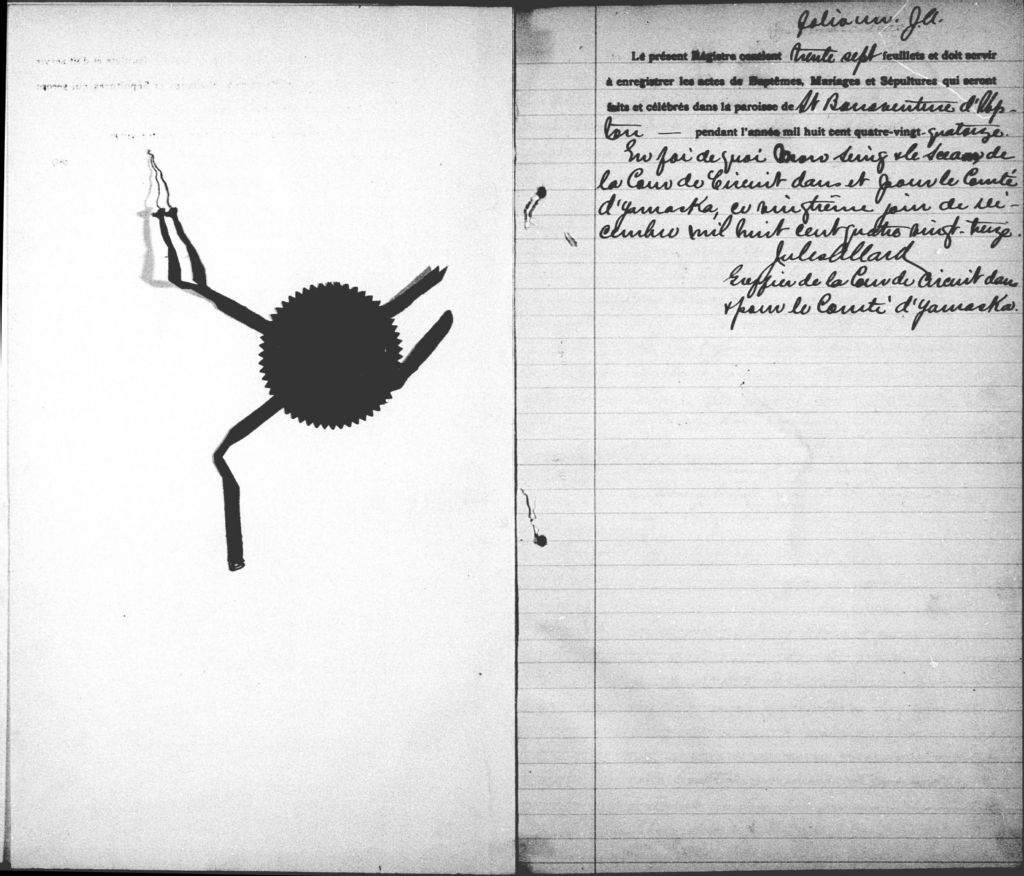 Folio un. J.A.
Le présent Régistre contient trente sept feuillets et doit servir
à enregistrer les actes de Baptêmes, Mariages et Sépultures qui seront
faits et célébrés dans la paroisse de St Bonaventure d'Up-
ton — pendant l'année mil huit cent quatre-vingt-quatorze.
En foi de quoi mon seing & le sceau de
la Cour de Circuit dans et pour le Comté
d'Yamaska, ce vingtième jour de dé-
cembre mil huit cent quatre vingt-treize.
Jules Allard
Greffier de la Cour de Circuit dans
& pour le Comté d'Yamaska.